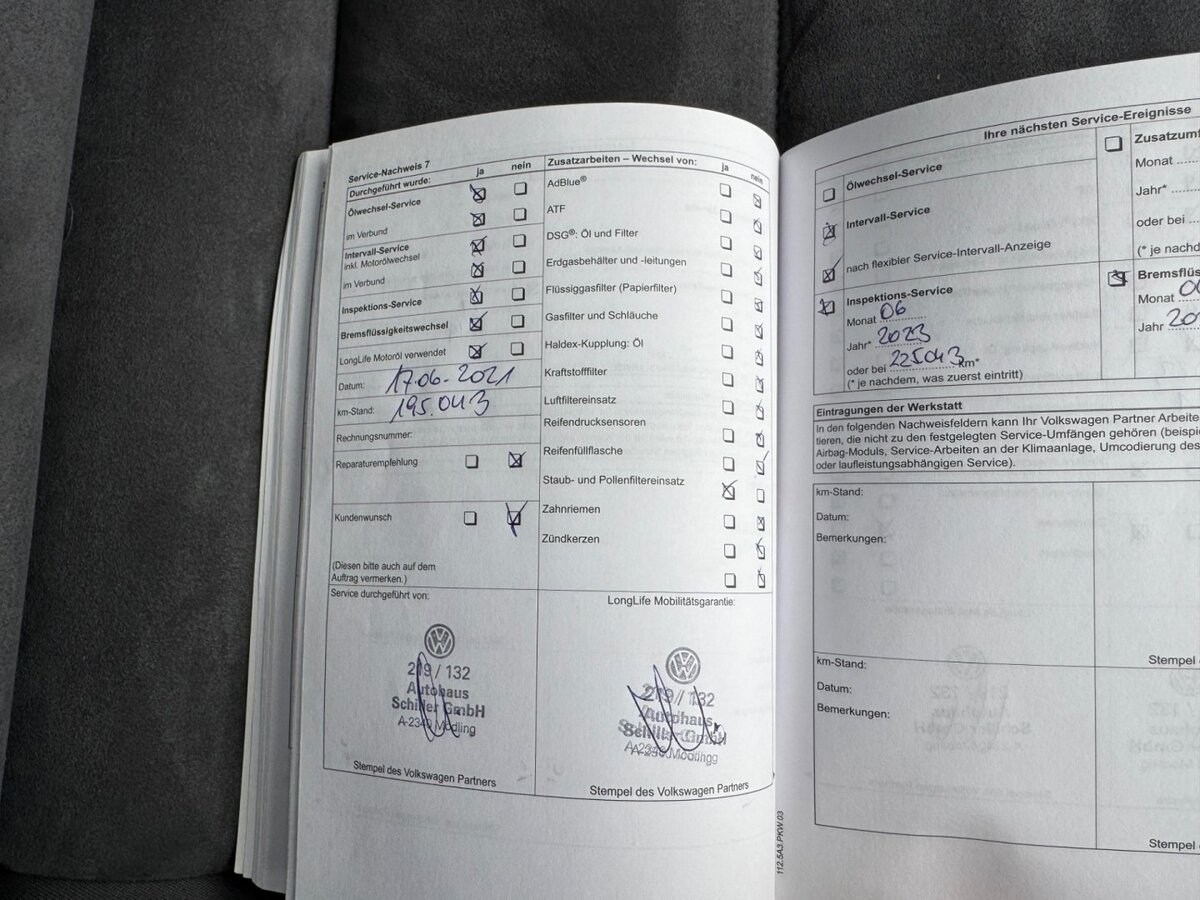 Service-Nachweis 7
Durchgeführt wurde: ja nein
Ölwechsel-Service
im Verbund
Intervall-Service
inkl. Motorölwechsel
im Verbund
Inspektions-Service
Bremsflüssigkeitswechsel
LongLife Motoröl verwendet
Datum: 17.06.2021
km-Stand: 195.043
Rechnungsnummer:
Reparaturempfehlung
Kundenwunsch
(Diesen bitte auch auf dem
Auftrag vermerken.)
Zusatzarbeiten – Wechsel von: ja nein
AdBlue®
ATF
DSG®: Öl und Filter
Erdgasbehälter und -leitungen
Flüssiggasfilter (Papierfilter)
Gasfilter und Schläuche
Haldex-Kupplung: Öl
Kraftstofffilter
Luftfiltereinsatz
Reifendrucksensoren
Reifenfüllflasche
Staub- und Pollenfiltereinsatz
Zahnriemen
Zündkerzen
Service durchgeführt von:
219 / 132
Autohaus
Schiller GmbH
Mödling
Stempel des Volkswagen Partners
LongLife Mobilitätsgarantie:
219 / 132
Autohaus
Schiller GmbH
Stempel des Volkswagen Partners
112.5A3.PKW.03
Ihre nächsten Service-Ereignisse
Ölwechsel-Service
Intervall-Service
nach flexibler Service-Intervall-Anzeige
Inspektions-Service
Monat 06
Jahr* 2023
oder bei 225043 km*
(* je nachdem, was zuerst eintritt)
Monat
Jahr*
oder bei
(* je nachd
Monat
Jahr
Eintragungen der Werkstatt
In den folgenden Nachweisfeldern kann Ihr Volkswagen Partner Arbeite
tieren, die nicht zu den festgelegten Service-Umfängen gehören (beispie
Airbag-Moduls, Service-Arbeiten an der Klimaanlage, Umcodierung des
oder laufleistungsabhängigen Service).
km-Stand:
Datum:
Bemerkungen:
Stempel
km-Stand:
Datum:
Bemerkungen:
Stempel